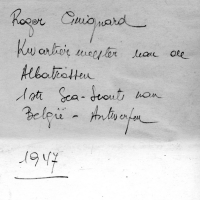 Roger Guignard
Kwartiermeester van de
Albatrossen
1ste Sea-Scouts van
België - Antwerpen
1947